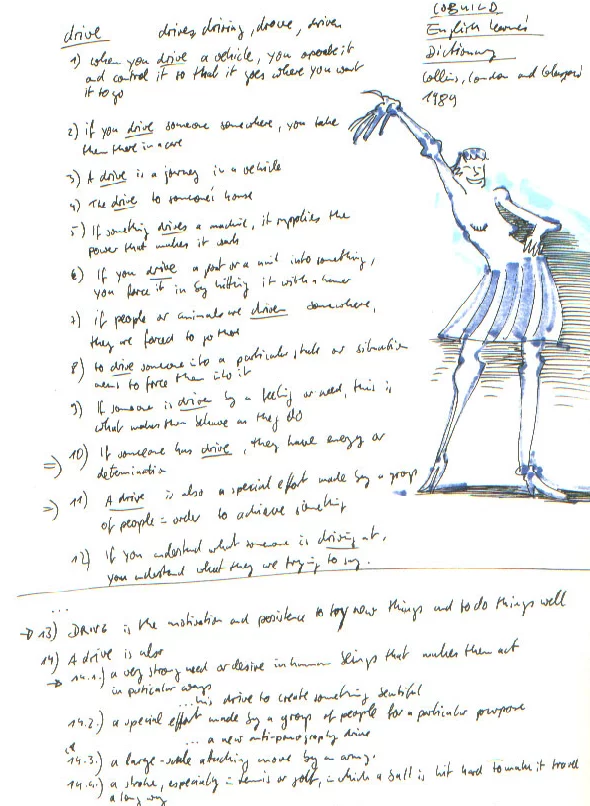 drive drives, driving, drove, driven
COBUILD
English learner's
Dictionary
Collins, London and Glasgow
1989
1) When you drive a vehicle, you operate it
and control it so that it goes where you want
it to go
2) if you drive someone somewhere, you take
them there in a car
3) A drive is a journey in a vehicle
4) The drive to someone's house
5) If something drives a machine, it supplies the
power that makes it work
6) If you drive a post or a nail into something,
you force it in by hitting it with a hammer
7) if people or animals are driven somewhere,
they are forced to go there
8) to drive someone into a particular state or situation
means to force them into it
9) If someone is driven by a feeling or need, this is
what makes them behave as they do
=> 10) If someone has drive, they have energy or
determination
=> 11) A drive is also a special effort made by a group
of people in order to achieve something
12) If you understand what someone is driving at,
you understand what they are trying to say.
...
→ 13) DRIVE is the motivation and persistence to try new things and to do things well
14) A drive is also
→ 14.1.) a very strong need or desire in human beings that makes them act
in particular ways
...his drive to create something beautiful
14.2.) a special effort made by a group of people for a particular purpose
... a new anti-pornography drive
14.3.) a large-scale attacking move by an army.
14.4.) a stroke, especially in tennis or golf, in which a ball is hit hard to make it travel
a long way